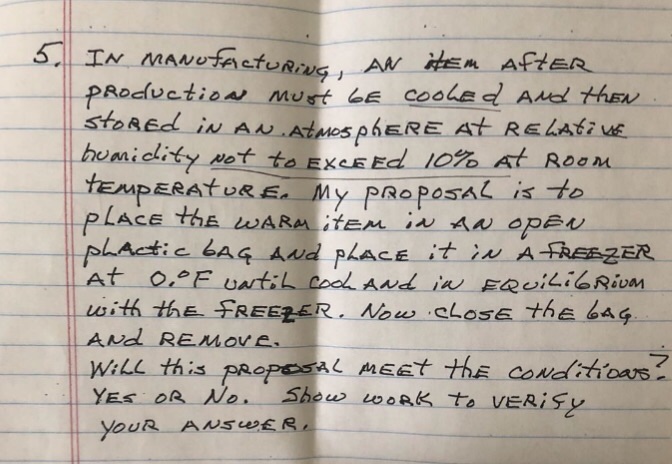 5. IN MANUFACTURING, AN ITEM AFTER
PRODUCTION MUST BE COOLED AND THEN
STORED IN AN ATMOSPHERE AT RELATIVE
HUMIDITY NOT TO EXCEED 10% AT ROOM
TEMPERATURE. MY PROPOSAL IS TO
PLACE THE WARM ITEM IN AN OPEN
PLACTIC BAG AND PLACE IT IN A FREEZER
AT 0.°F UNTIL COOL AND IN EQUILIBRIUM
WITH THE FREEZER. NOW CLOSE THE BAG
AND REMOVE.
WILL THIS PROPOSAL MEET THE CONDITIONS?
YES OR NO. SHOW WORK TO VERIFY
YOUR ANSWER.